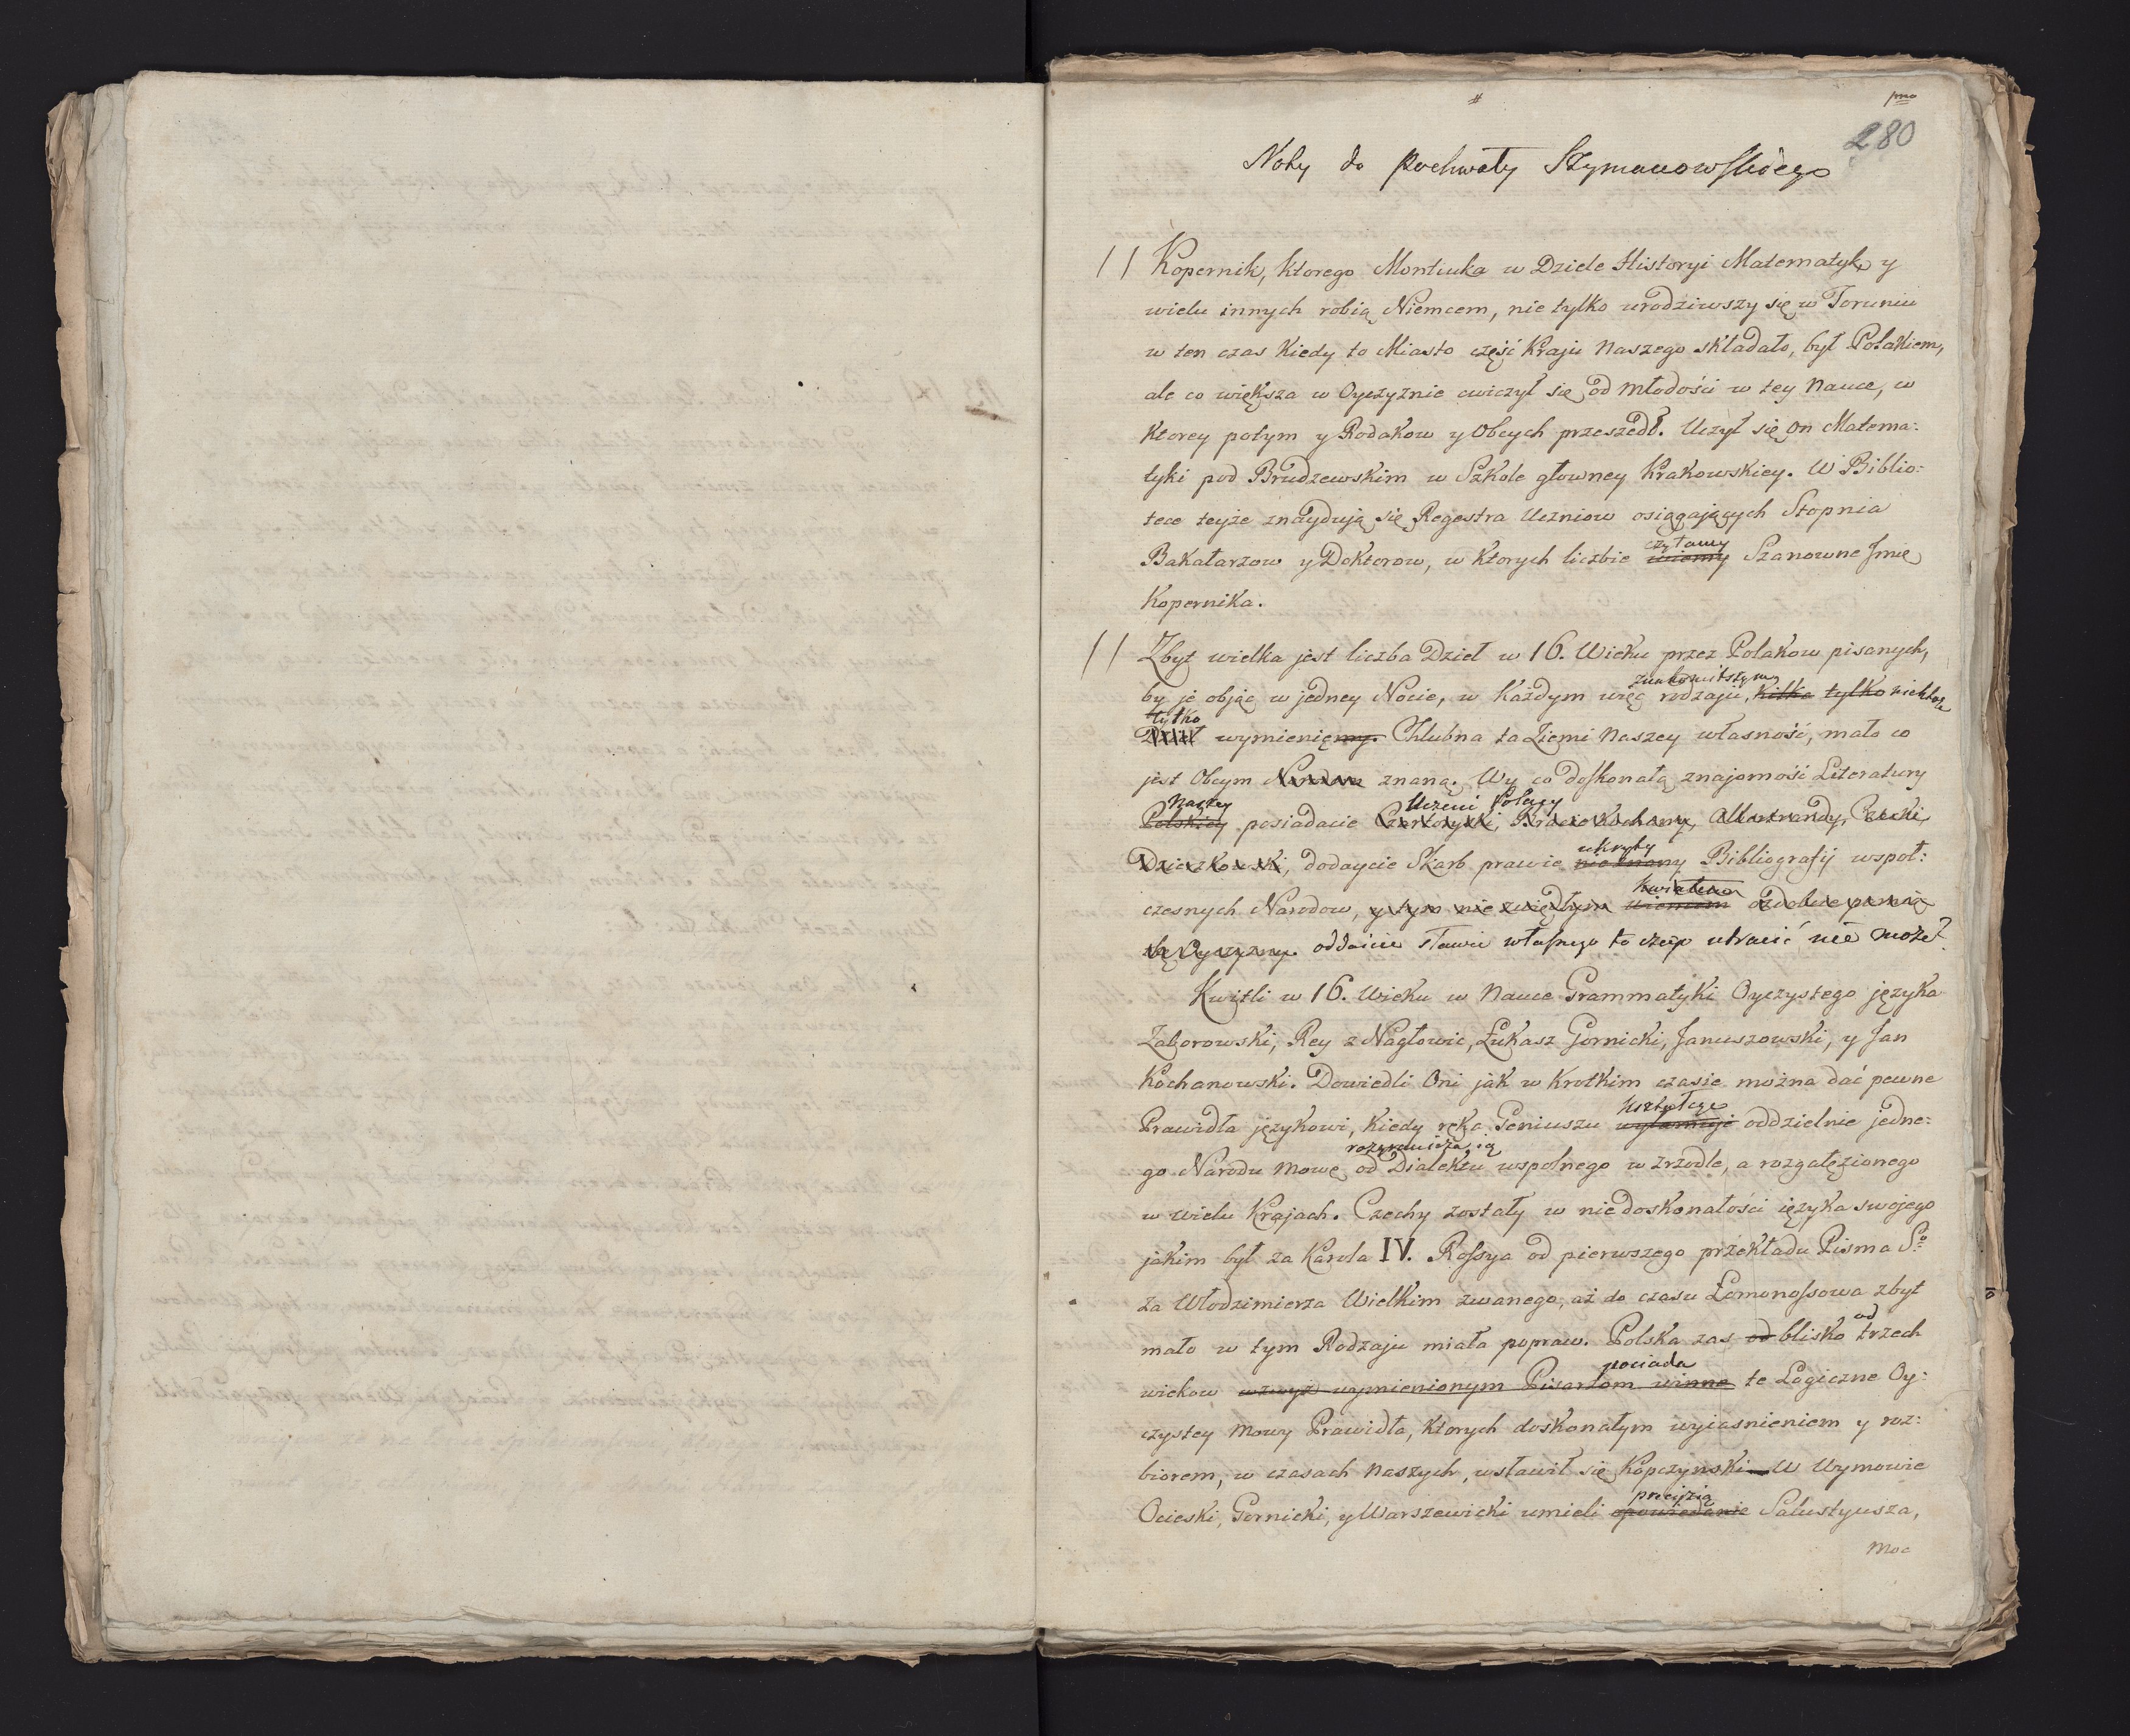 pmo
280
Noty do Pochwały Szymanowskiego
Kopernik, ktorego Montiuka w Dziele Historyi Matematyk y
wielu innych robią Niemcem, nie tylko urodziwszy się w Toruniu
w ten czas kiedy to Miasto część Kraju naszego składało, był Polakiem,
ale co większa w Oyczyznie cwiczył się od młodości w tey nauce, w
ktorey potym y Rodakow y Obcych przeszedł. Uczył się on Matema:
tyki pod Brudzewskim w Szkole głowney Krakowskiey. W Biblio:
tece teyże znayduią się Regestra Uczniow osiągaiących Stopnia
czytamy
Bakałarzow y Doktorow, w ktorych liczbie wiemy Szanowne Jmie
Kopernika.
Zbyt wielka jest liczba Dzieł w 16. Wieku przez Polakow pisanych,
znakomitszym
by je objąć w jedney Nocie, w każdym więc rodzaju, kilka tylko niektore
tylko
Dzieł wymienięmy. Chlubna ta Ziemi naszey własność, mało co
jest Obcym Narodom znaną. Wy co doskonałą znajomość Literatury
naszey Uczeni Polacy
Polskiey posiadacie Czartoryski, Bracie Kochany, Albertrandy, Czacki,
ukryty
Dzieszkowski, dodaycie Skarb prawie nieznany Bibliografij wspoł:
kwiatem
czesnych Narodow, y tym nie zwiędłym wiencem ozdobcie pamię
tkę Oyczyzny. oddaicie sławie własnego to czego utracić nie może.
Kwitli w 16. Wieku w nauce Grammatyki Oyczystego języka
Zaborowski, Rey z Nagłowic, Łukasz Gornicki, Januszowski, y Jan
Kochanowski. Dowiedli oni jak w krotkim czasie można dać pewne
kształcąc
Prawidła językowi, kiedy ręka Geniuszu wyłamuje oddzielnie jedne:
go Narodu mowę od Dialektu wspolnego w zrzodle, a rozgałęzionego
w wielu Krajach. Czechy zostały w niedoskonałości ięzyka swojego
jakim był za Karola IV. Rossya od pierwszego przekładu Pisma Sgo
za Włodzimierza Wielkim zwanego, aż do czasu Łomonossowa zbyt
od
mało w tym Rodzaju miała popraw. Polska zas od blisko trzech
posiada
wiekow wzwyż wymienionym Pisarzom winna te Logiczne Oy:
czystey mowy Prawidła, ktorych doskonałym wyiasnieniem y roz:
biorem, w czasach naszych, wsławił się Kopczynski. W Wymowie
precyzią
Ocieski, Gornicki, y Warszewicki umieli opowiedanie Salustyusza,
moc